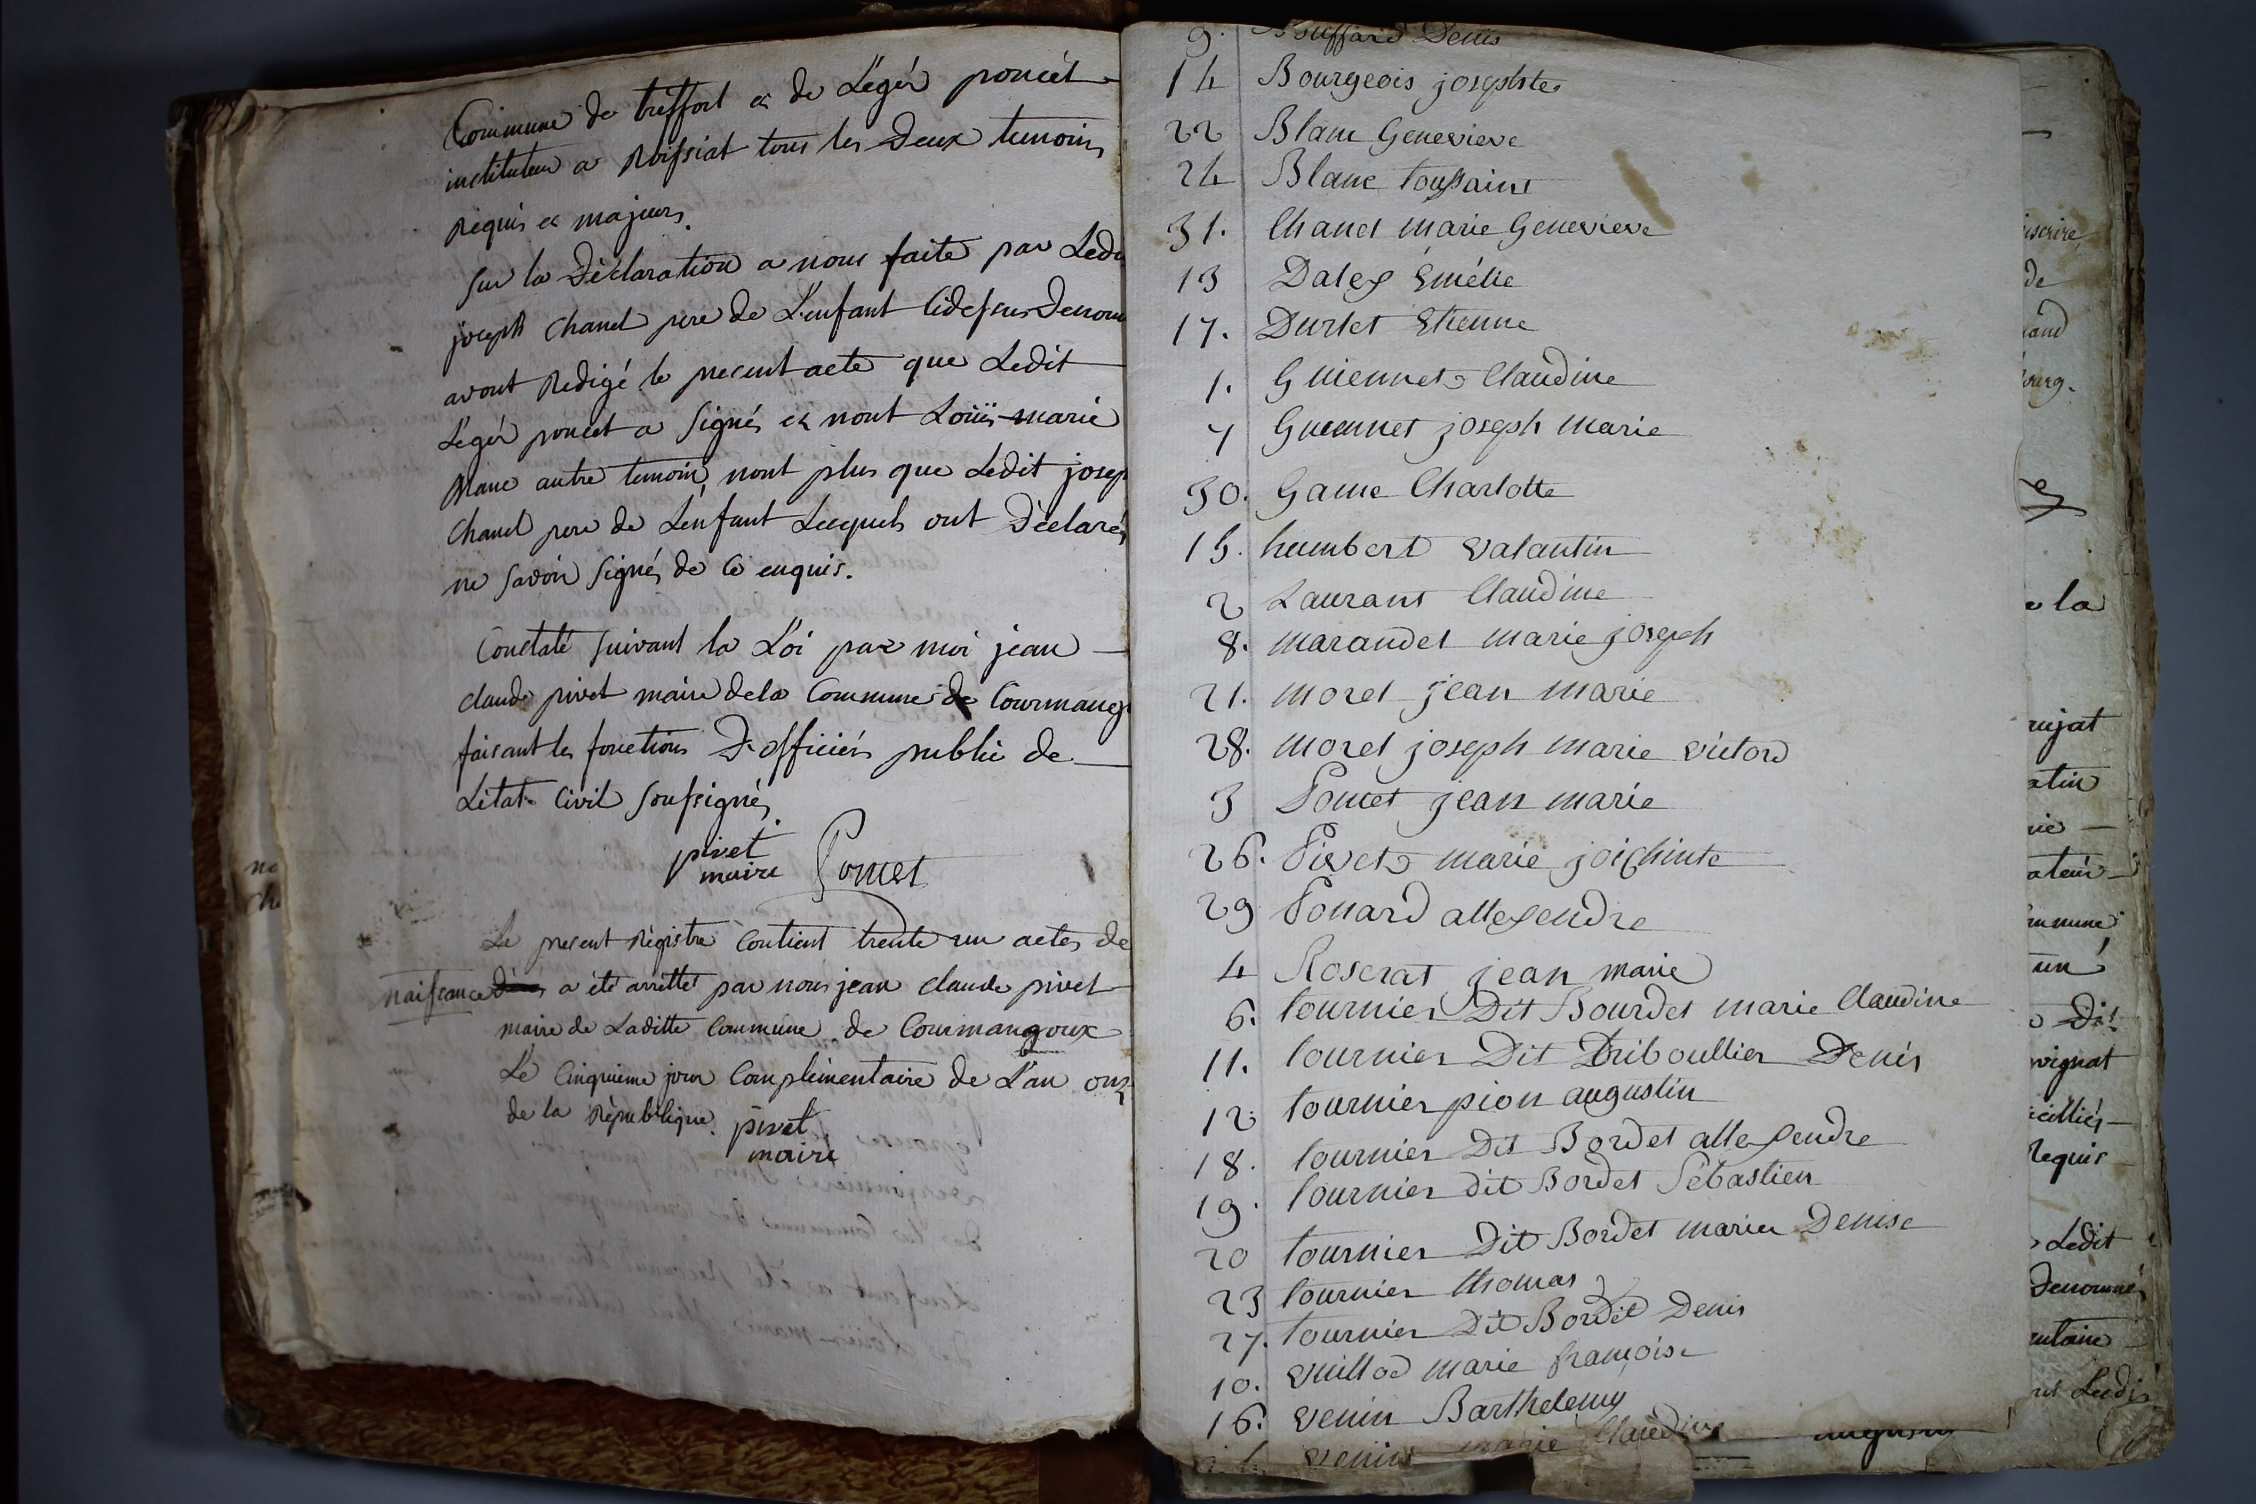 Commune de treffort et de Léger poncet
instituteur a Roissiat tous les Deux temoins
Requis et majeurs.
Sur la Déclaration a nous faite par Ledi
joseph Chanel pere de L'enfant Cidessus Denom
avont Redigé le present acte que Ledit
Léger poncet a Signés et nont Loüis marie
Blanc autre temoin, nont plus que Ledit josep
Chanel pere de L'enfant Lesquels ont Déclarés
ne savoir Signés de Ce enquis.
Constaté suivant la Loi par moi jean
claude pivet maire dela Commune de Courmang
faisant les fonctions D'officiers public de
L'état Civil soussignés.
pivet
maire Poncet
Le present Régistre Contient trente un actes de
naissance a été arretté par nous jean claude pivet
maire de Laditte Commune de Courmangoux
Le Cinquieme jour Complimentaire de L'an onz
de la Republique. pivet
maire
9. Bouffard Denis
14 Bourgeois josephte
22 Blanc Genevieve
24 Blanc toussaint
31. Chanel marie Genevieve
13 Dalex Emélie
17. Durlet Etienne
1. Guiennet Claudine
7 Guiennet joseph marie
30. Game Charlotte
15. humbert valantin
2 Laurant Claudine
8. marandet marie joseph
21. morel jean marie
28. morel joseph marie victord
3 Poncet jean marie
26. Pivet marie joichinte
29 Ponard allexendre
4 Roserat jean marie
6. tournier Dit Bourdet marie Claudine
11. tournier Dit Driboullier Denis
12. tournier pion augustin
18. tournier Dit Bordet allexendre
19. tournier dit Bordet Sébastien
20 tournier Dit Bordet marie Denise
23 tournier thomas
27. tournier Dit Bordet Denis
10. vuillod marie françoise
16. venin Barthelemy
venin marie Claudine
iscrire
de
and
ourg.
la
rujat
atin
rie
ateur
mmune
un
Dit
vignat
Requis
Ledit
Denommé
Ledi